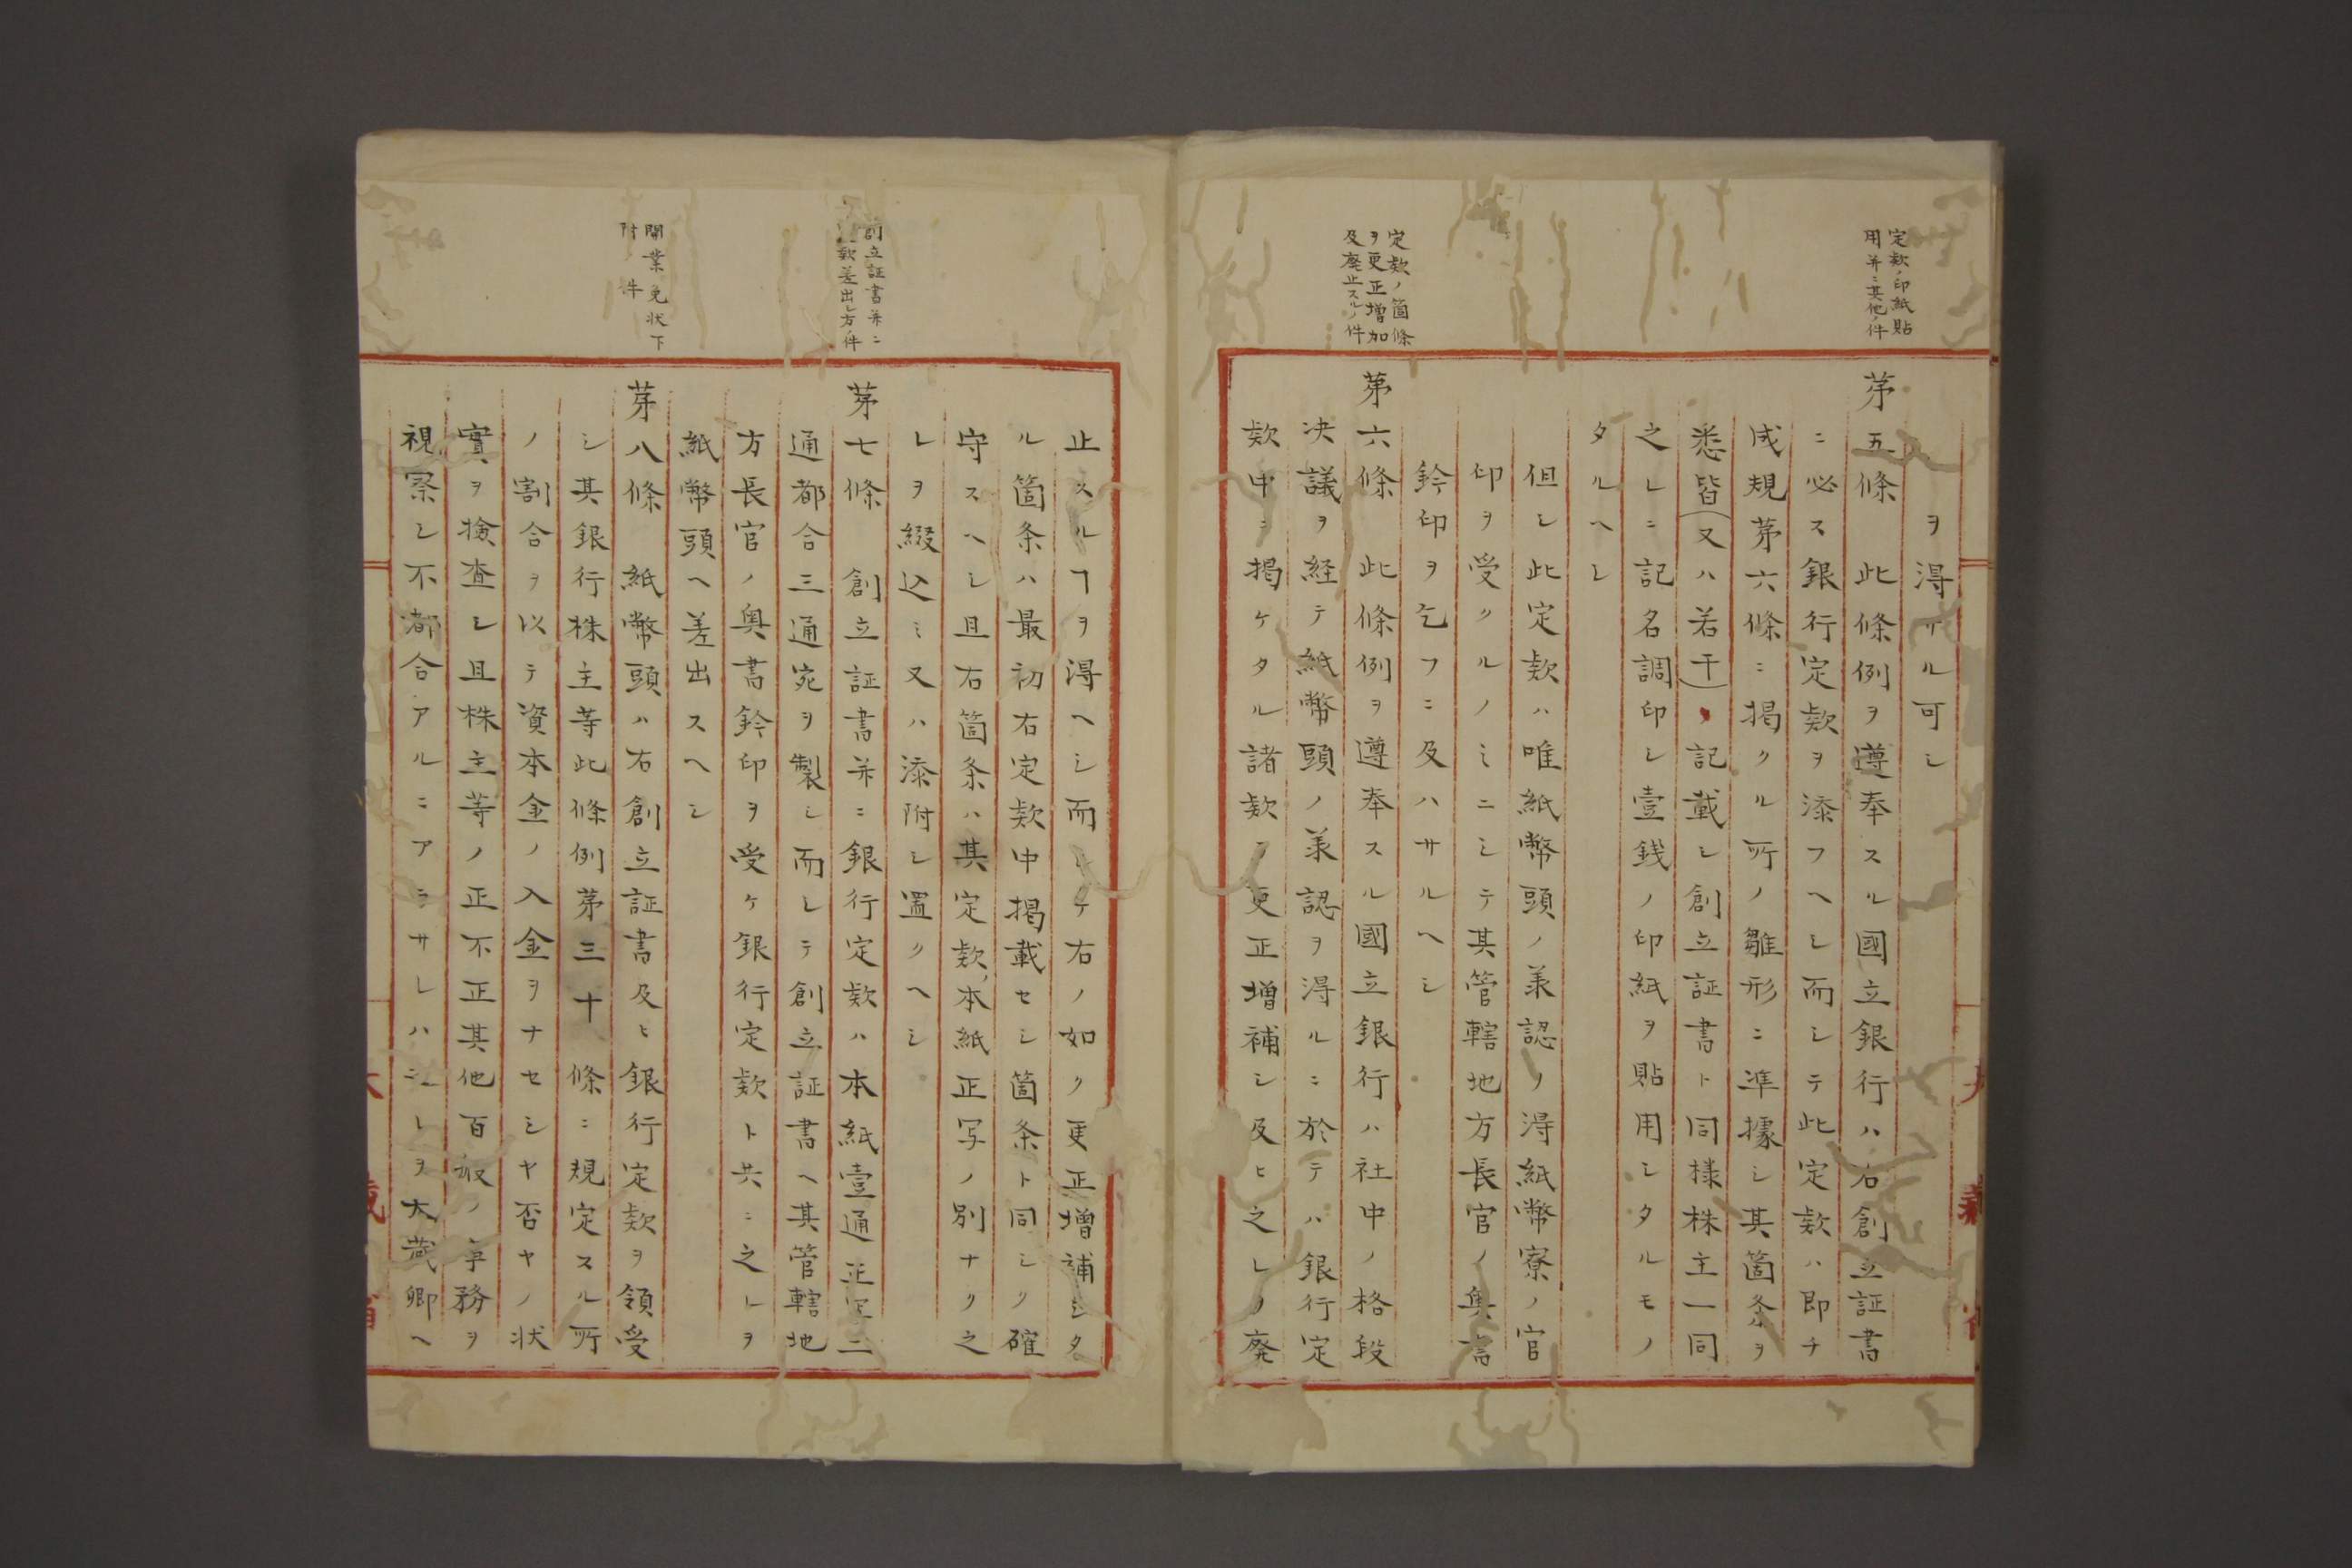 定款ノ印紙貼
用并ニ其他ノ件
定款ノ箇條
ヲ更正増加
及廃止スルノ件
ヲ得サル可シ
第五條　此條例ヲ遵奉スル國立銀行ハ右創立証書
ニ必ス銀行定款ヲ添フヘシ而シテ此定款ハ即チ
成規第六條ニ掲クル所ノ雛形ニ準據シ其箇条ヲ
悉皆(又ハ若干)ヲ記載シ創立証書ト同様株主一同
之レニ記名調印シ壹銭ノ印紙ヲ貼用シタルモノ
タルヘシ
但シ此定款ハ唯紙幣頭ノ承認ヲ得紙幣寮ノ官
印ヲ受クルノミニシテ其管轄地方長官ノ奥書
鈐印ヲ乞フニ及ハサルヘシ
第六條　此條例ヲ遵奉スル國立銀行ハ社中ノ格段
决議ヲ経テ紙幣頭ノ承認ヲ得ルニ於テハ銀行定
款中ニ掲ケタル諸款ヲ更正増補シ及ヒ之レヲ廃
創立証書并ニ
款差出シ方ノ件
開業免状下
附件
止スルヿヲ得ヘシ而シテ右ノ如ク更正増補シタ
ル箇条ハ最初右定款中掲載セシ箇条ト同シク確
守スヘシ且右箇条ハ其定款本紙正写ノ別ナク之
レヲ綴込ミ又ハ添附シ置クヘシ
第七條　創立証書并ニ銀行定款ハ本紙壹通正写二
通都合三通宛ヲ製シ而シテ創立証書ヘ其管轄地
方長官ノ奥書鈐印ヲ受ケ銀行定款ト共ニ之レヲ
紙幣頭ヘ差出スヘシ
第八條　紙幣頭ハ右創立証書及ヒ銀行定款ヲ領受
シ其銀行株主等此條例第三十條ニ規定スル所
ノ割合ヲ以テ資本金ノ入金ヲナセシヤ否ヤノ状
實ヲ撿査シ且株主等ノ正不正其他百般ノ事務ヲ
視察シ不都合アルニアラサレハ之レヲ大蔵卿ヘ